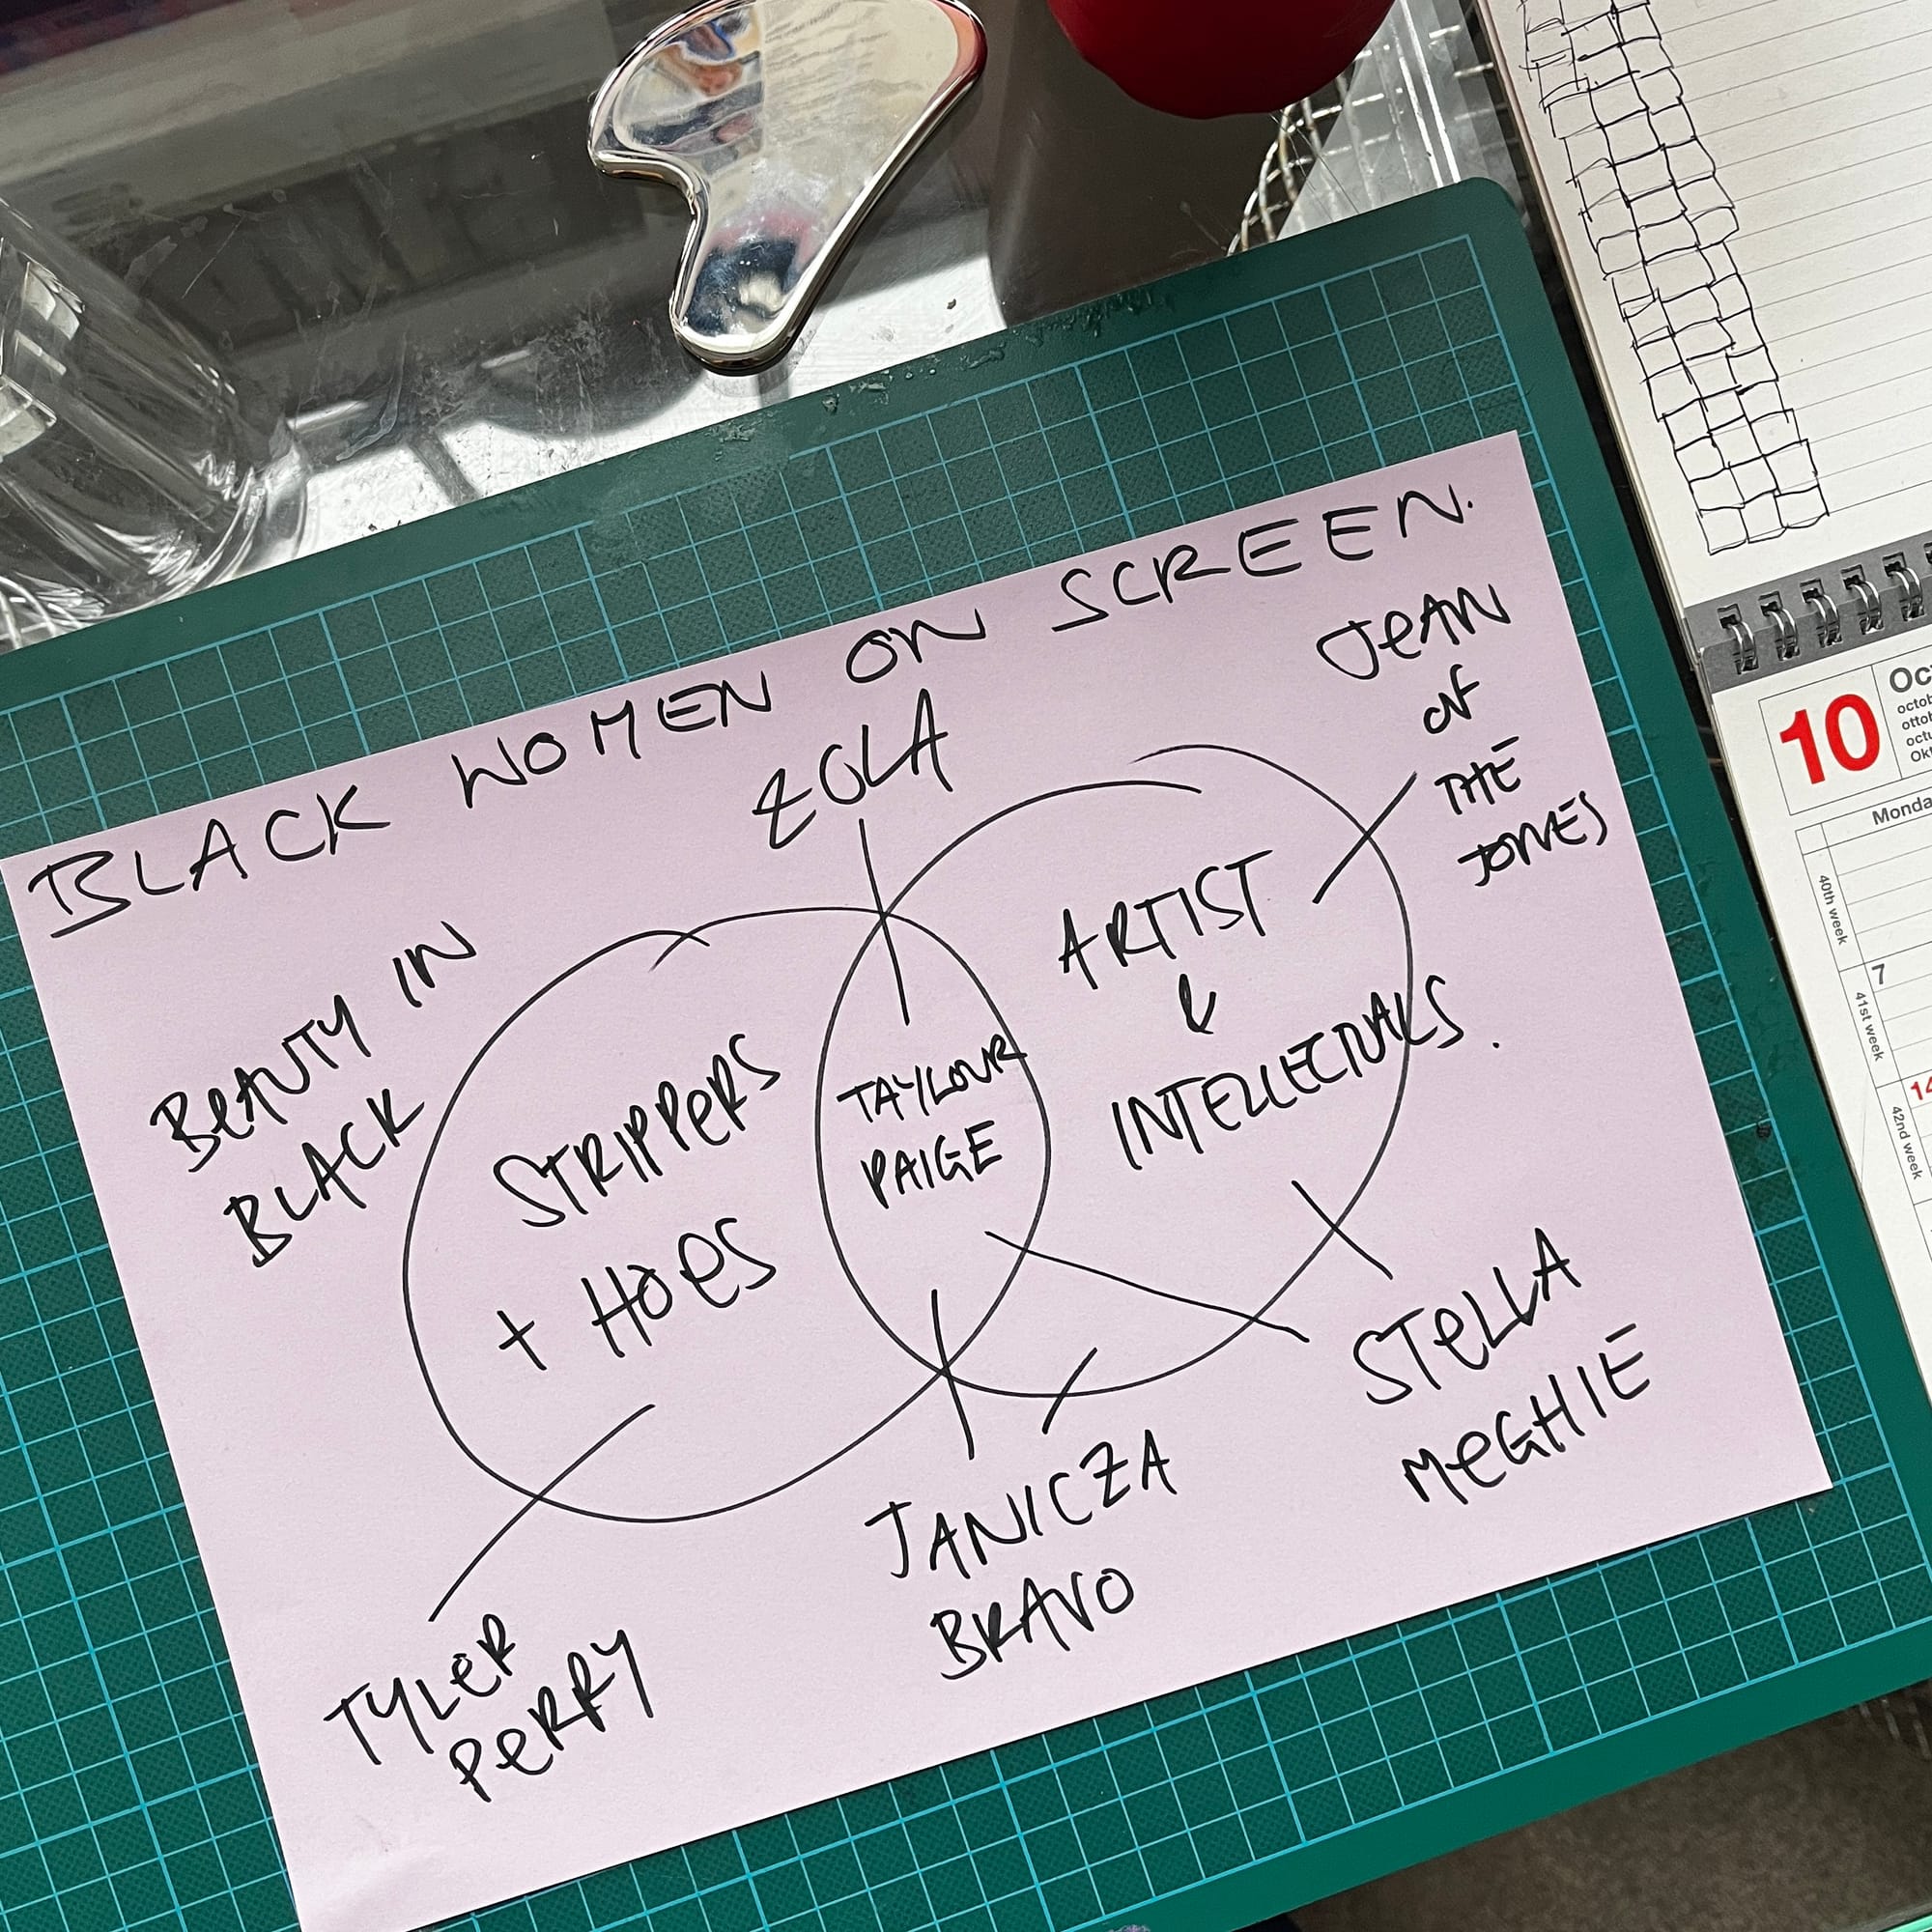 BLACK WOMEN ON SCREEN.
ZOLA
JEAN
OF
THE
JONES
BEAUTY IN
BLACK
STRIPPERS
+ HOES
TAYLOUR
PAIGE
ARTIST
&
INTELLECTUALS.
TYLER
PERRY
JANICZA
BRAVO
STELLA
MEGHIE
10
Monda
40th week
7
41st week
14
42nd week